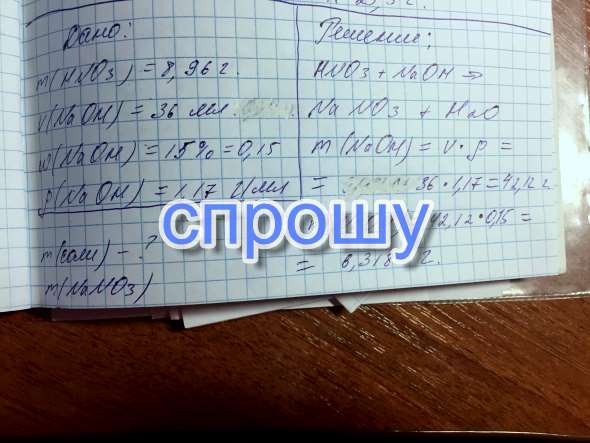 Дано:
m(HNO3) = 8,96 г.
V(NaOH) = 36 мл.
w(NaOH) = 15% = 0,15
ρ(NaOH) = 1,17 г/мл
m(соли) - ?
m(NaNO3)
Решение:
HNO3 + NaOH ⇒
NaNO3 + H2O
m(NaOH) = V · ρ =
= 36 · 1,17 = 42,12 г
42,12 · 0,15 =
= 6,318 г.
спрошу